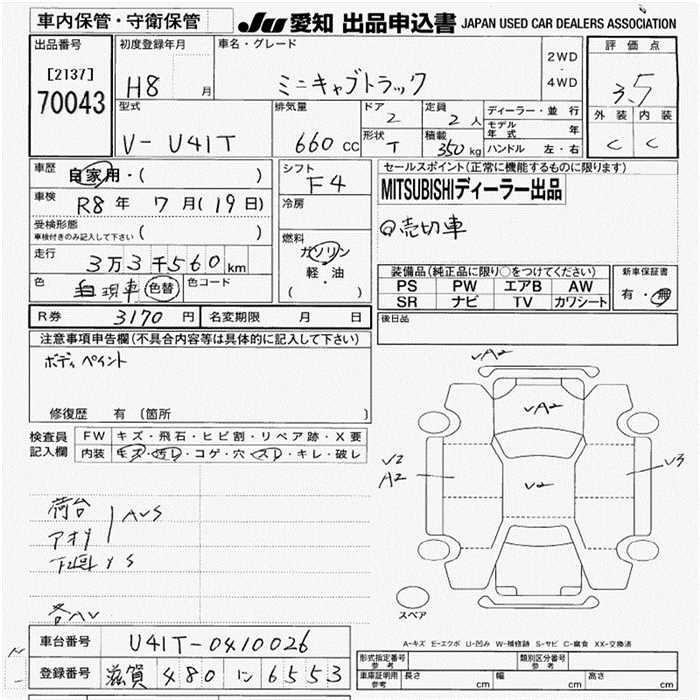 車内保管・守衛保管
JU 愛知 出品申込書 JAPAN USED CAR DEALERS ASSOCIATION
出品番号
[2137]
70043
初度登録年月
H8 月
車名・グレード
ミニキャブトラック
2WD
・
4WD
評価点
3.5
外装 内装
C C
型式
V-U41T
排気量
660 cc
ドア
2
定員
2 人
形状
T
積載
350 kg
ディーラー・並行
モデル年式 年
ハンドル 左・右
車歴
自家用・( )
車検
R8 年 7 月(19日)
受検形態
車検付きのみ記入して下さい ( )
走行
3万3千560km
色
白 現車 色替
色コード
シフト
F4
冷房
燃料
ガソリン
軽・油
( )
セールスポイント(正常に機能するものに限ります)
MITSUBISHIディーラー出品
売切車
装備品(純正品に限り○をつけてください)
PS PW エアB AW
SR ナビ TV カワシート
新車保証書
有・無
R券 3170 円
名変期限 月 日
後日品
注意事項申告欄(不具合内容等は具体的に記入して下さい)
ボディペイント
修復歴 有 (箇所 )
検査員記入欄
FW キズ・飛石・ヒビ割・リペア跡・X要
内装 キズ・汚レ・コゲ・穴・スレ・キレ・破レ
荷台
アオリ
AVS
下回 YS
各AV
VA2
VA2
V2
A2
V2
V3
スペア
A-キズ E-エクボ U-凹み W-補修跡 S-サビ C-腐食 XX-交換済
車台番号 U41T-0410026
登録番号 滋賀 480 に 6553
形式指定番号 参考
類別区分番号 参考
車庫証明用 参考
長さ cm 幅 cm 高さ cm